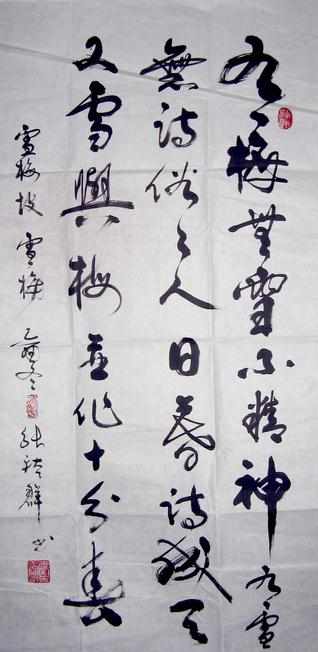 有梅無雪不精神有雪
無詩俗了人日暮詩成天
又雪與梅並作十分春
梅坡雪梅 冬 張 群书